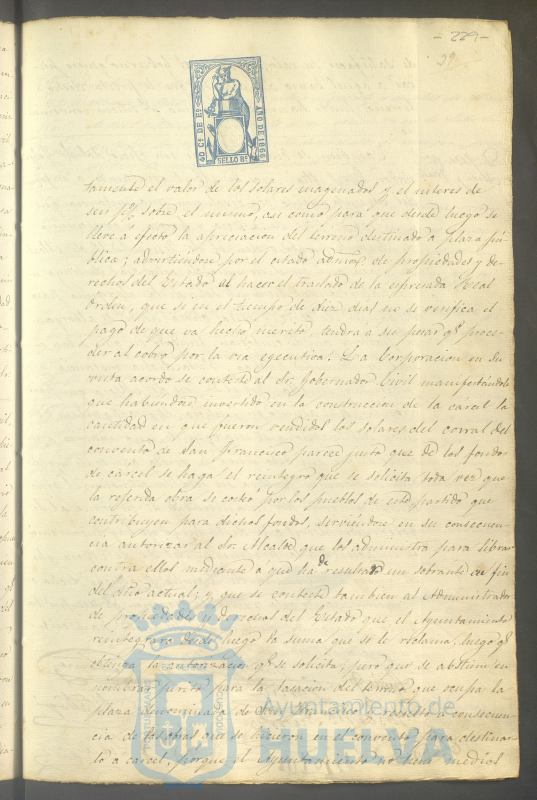 - 229 -
40 Cs DE Eo
AÑO DE 1866
SELLO 8º
tamente el valor de los solares enagenados y el interes de
seis p% sobre el mismo, asi como para que desde luego se
lleve á efecto la apreciacion del terreno destinado a plaza pú-
blica y advirtiendose por el citado admor de propiedades y de-
rechos del Estado al hacer el traslado de la espresada Real
Orden, que si en el tiempo de diez dias no se verifica el
pago de que va hecho merito, tendrá a su pesar q proce-
der al cobro por la via egecutiva. La Corporacion en su
vista acordó se conteste al Sr. Gobernador Civil manifestandole
que habiendose invertido en la construccion de la cárcel la
cantidad en que fueron vendidos los solares del corral del
convento de San Francisco parece justo que de los fondos
de cárcel se haga el reintegro que se solicita toda vez que
la referida obra se costeó por los pueblos de este partido que
contribuyen para dichos fondos, serviendose en su consecuen-
cia autorizar al Sr. Alcalde que los administra para librar
contra ellos mediante a que ha de resultar un sobrante en fin
del año actual; y que se conteste tambien al Administrador
de propiedades y derechos del Estado que el Ayuntamiento
reintegrará desde luego la suma que se le reclama, luego q
obtenga la autorizacion q se solicita; pero que se abstiene en
nombrar perito para la tasacion del terreno que ocupa la
plaza denominada de San Francisco a consecuen-
cia de las obras que se hicieron en el convento para destinar-
lo a cárcel, porque el Ayuntamiento no tiene medios
Ayuntamiento de
HUELVA